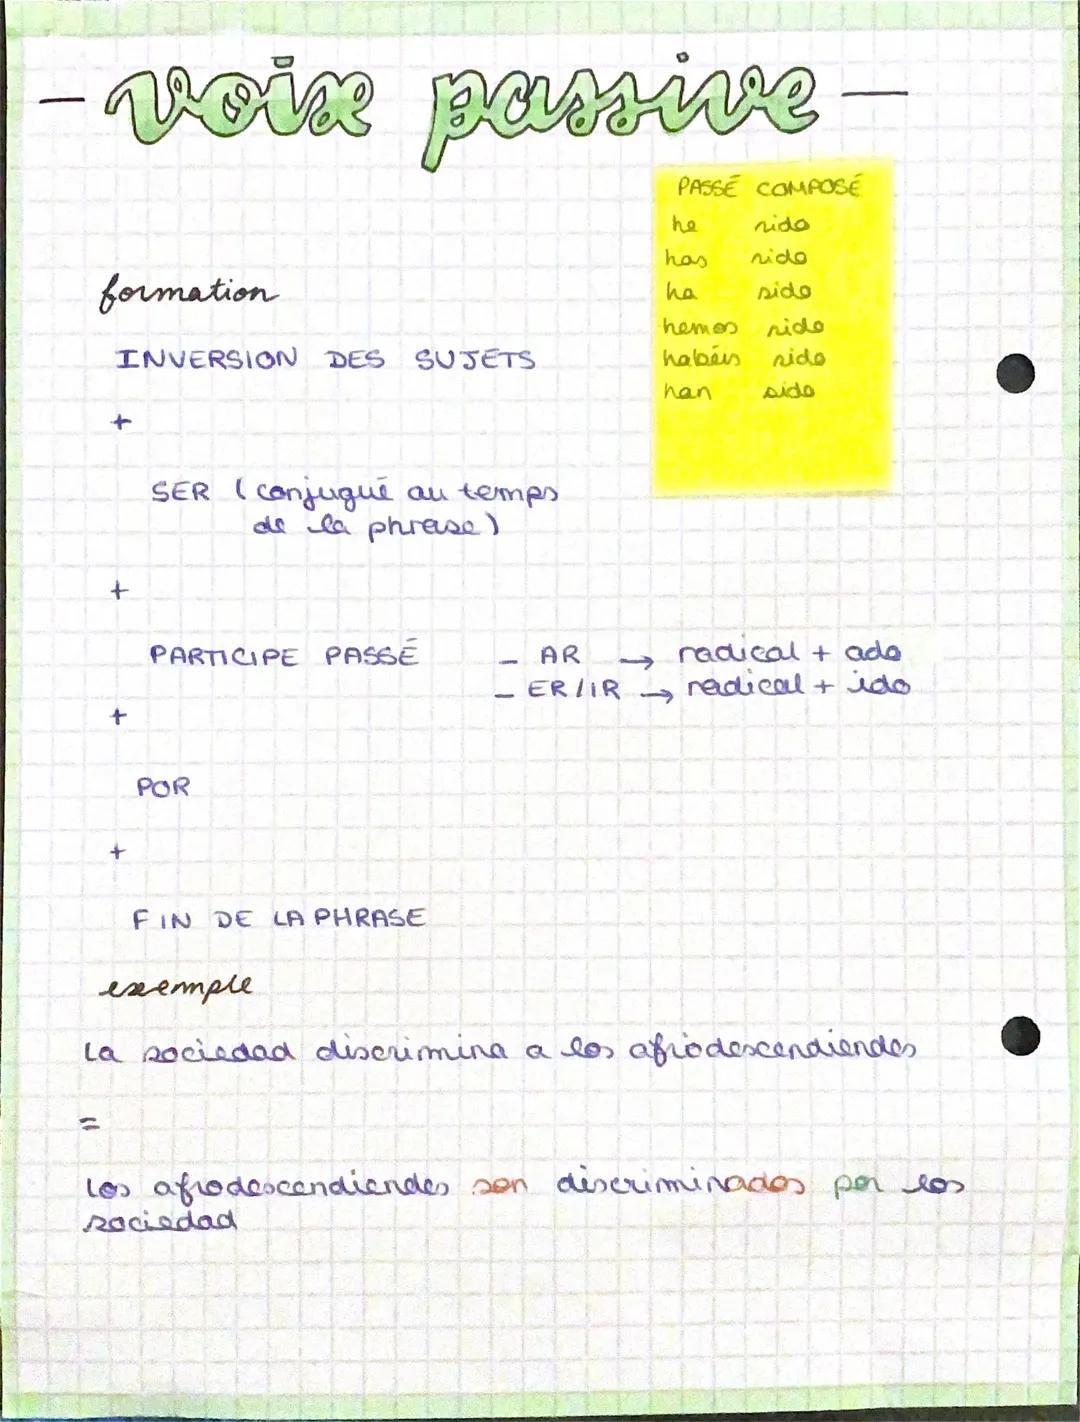 - voix passive -
PASSÉ COMPOSÉ
he sido
has sido
ha sido
hemos sido
habéis sido
han sido
formation
INVERSION DES SUJETS
+
SER (conjugué au temps
de la phrase)
+
PARTICIPE PASSÉ - AR → radical + ado
- ER/IR → radical + ido
+
POR
+
FIN DE LA PHRASE
exemple
La sociedad discrimina a los afrodescendiendes
=
Los afrodescendiendes son discriminados por los
sociedad